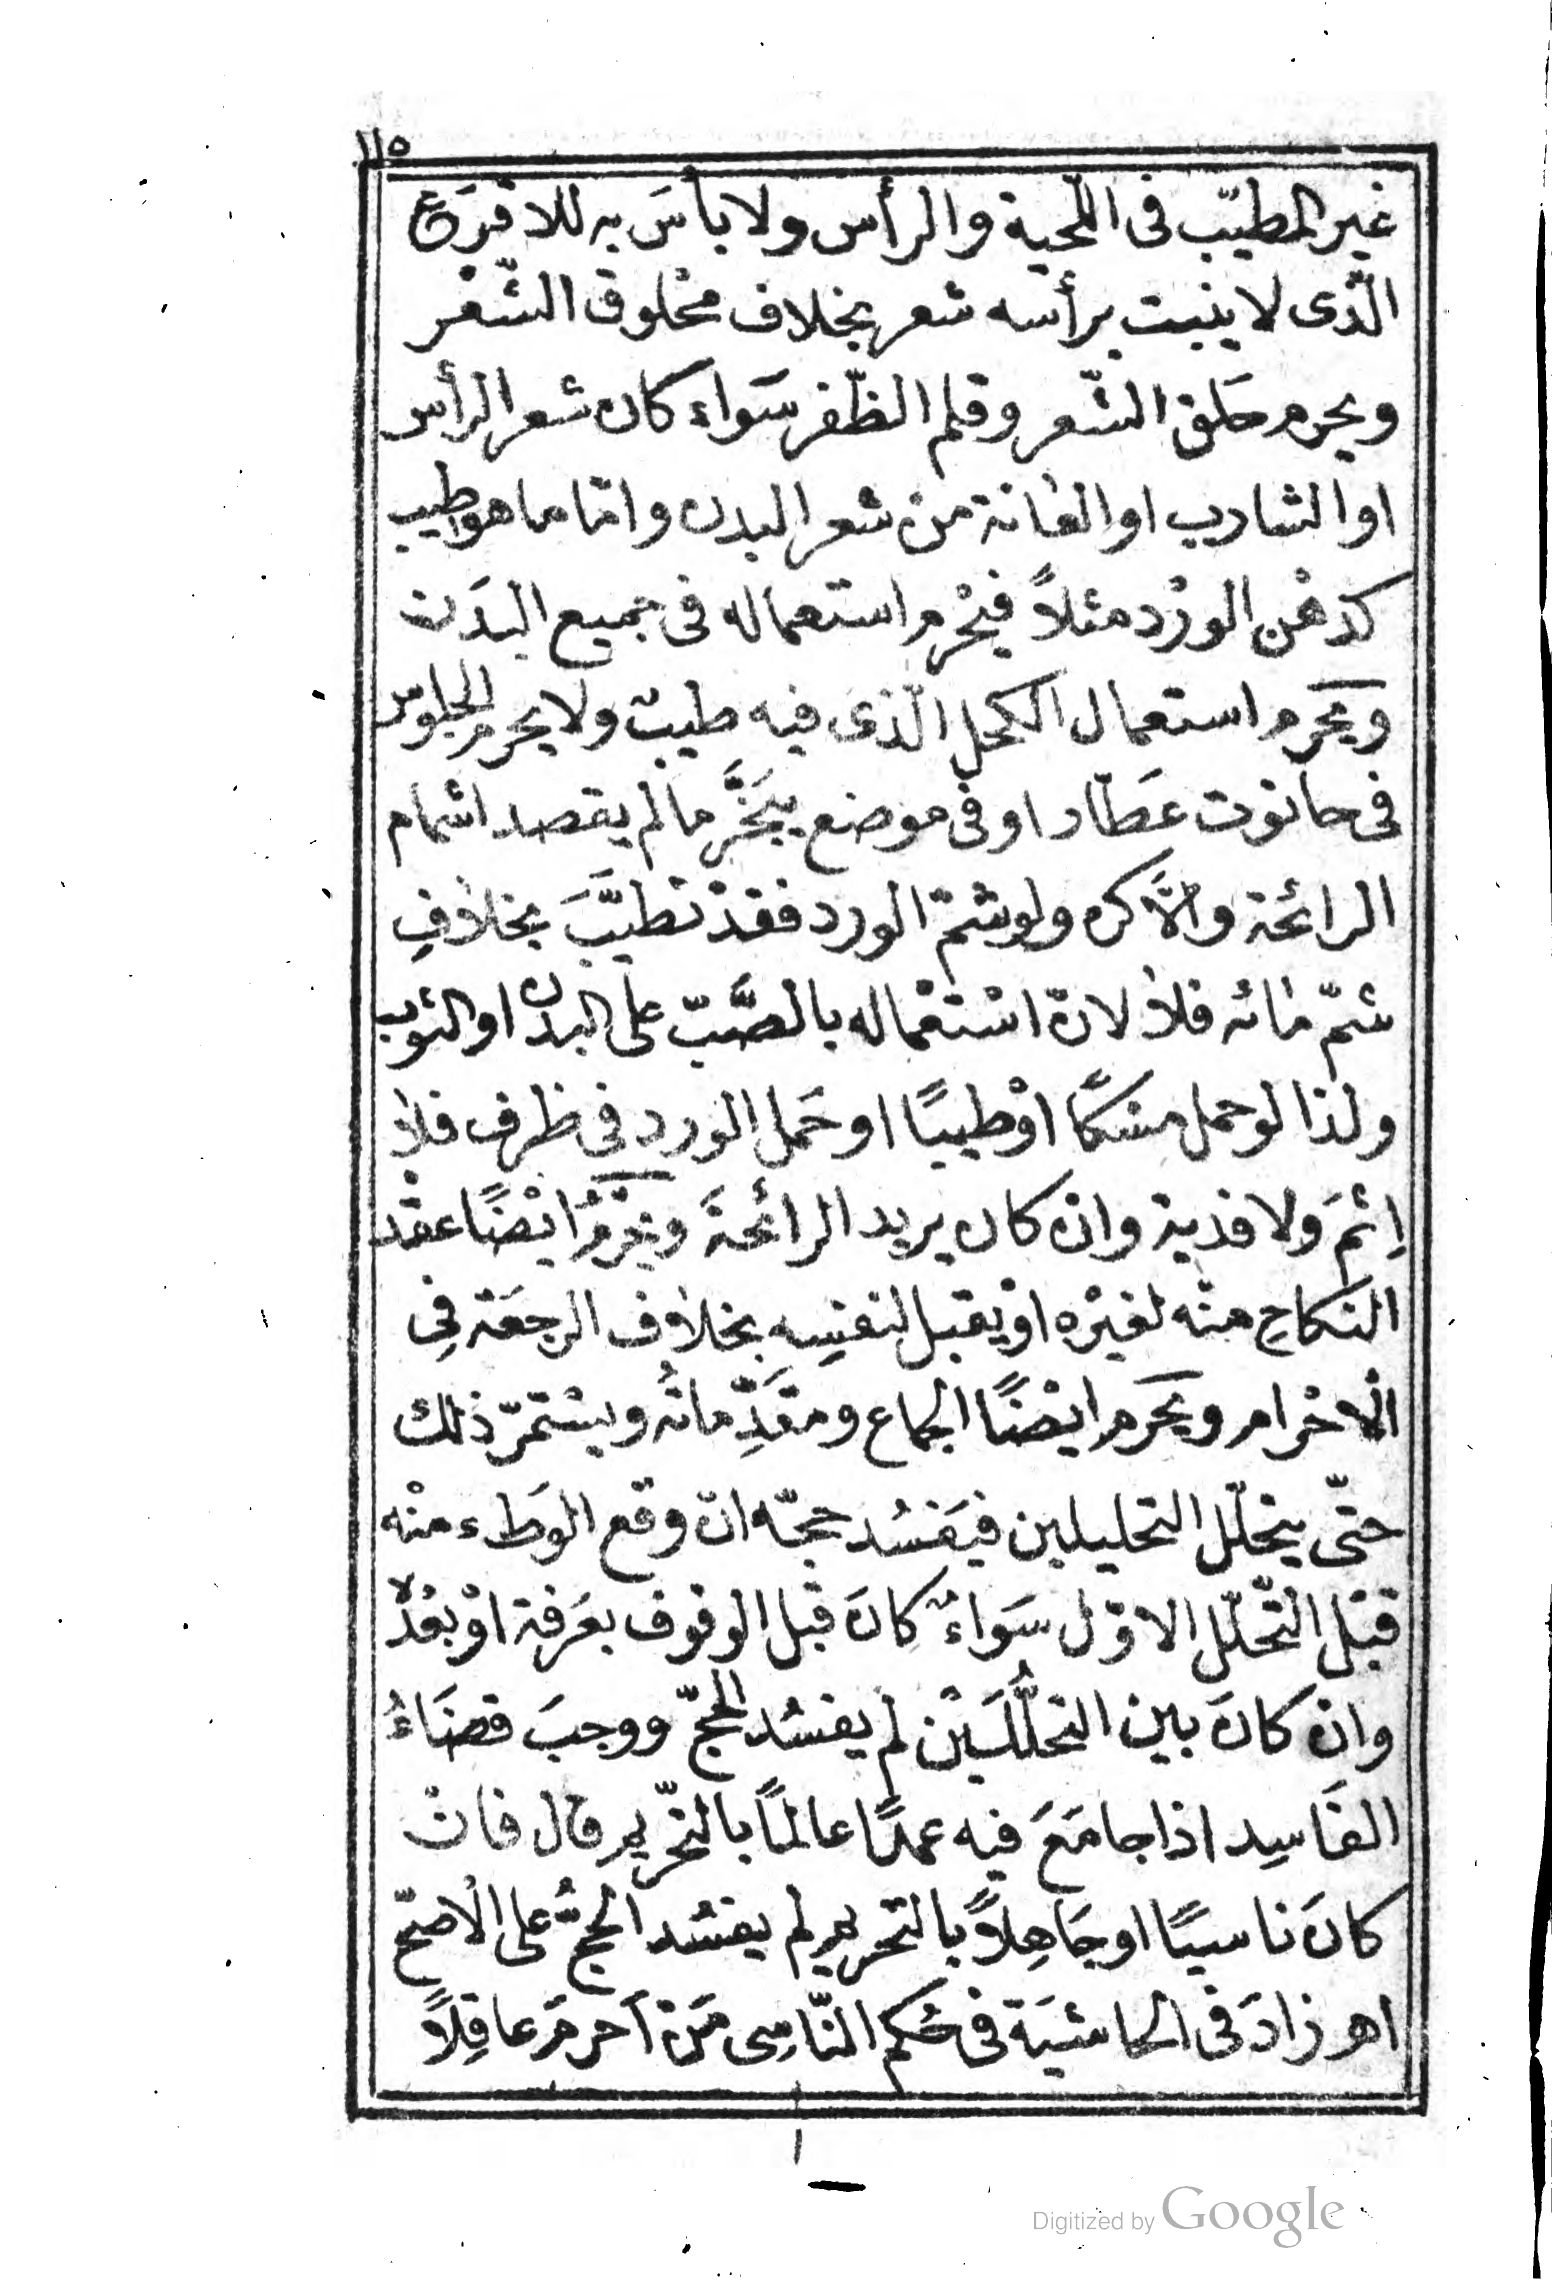 ١١٥
غير المطيّب فى اللّحية والرأس ولا بأسَ به للاقرَع
الّذى لا ينبت برأسه شعر بخلاف محْلوق الشّعْر
ويحرم حَلق الشّعر وقلم الظّفر سَواء كان شعر الرأس
او الشارب او العانة من شعر البدن وامّا ما هو طيب
كدهْن الورْد مثلاً فيحْرم استعماله فى جميع البدَن
ويَحرم استعمال الكحل الّذى فيه طيبٌ ولا يحرم الجلوس
فى حانوت عَطّار او فى موضع يبَخَّر ما لم يقصد اشمام
الرائحة والَّا كره ولو شمّ الورد فقدْ تطيَّبَ بخلافِ
شمّ مائه فلا لانّ اسْتعْماله بالصَّبّ على البدن او الثوب
ولذا لوحمل مسْكًا اوْ طيبًا او حَمل الورد فى ظرف فلا
اِثمَ ولا فدية وان كان يريد الرائحةَ ويَحْرمُ ايْضًا عقْد
النكاحِ منْه لغيْره اوْ يقبل لنفسِه بخلاف الرجعَة فِى
الْاحْرام ويَحرم ايْضًا الجماع ومقَدِّماتُه ويسْتمرّ ذلك
حتّى يتحلّل التحليلين فيَفسُد حجّه ان وقع الوَطء منْه
قبْل التّحلّل الاوّل سَواءٌ كانَ قبْل الوقوف بعَرفة اوْ بعْدُ
وان كانَ بين التحلُّلَيْن لم يفسُد الحجّ ووجبَ قضَاءُ
الفَاسِد اذا جامَعَ فيه عمدًا عالمًا بالتحْريم قال فان
كانَ ناسيًا او جَاهِلاً بالتحريم لم يفسُد الحجُّ على الْاصَحّ
اهـ زادَ فى الحاشيَة فى حُكم النّاسِى مَنْ اَحرمَ عاقِلاً
١
Digitized by Google